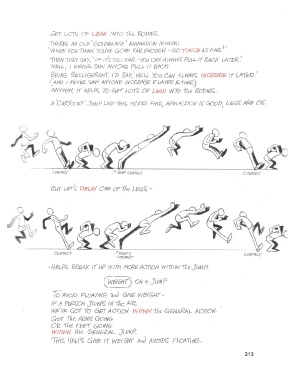 GET LOTS OF LEAN INTO THE BODIES.
THERE'S AN OLD 'GOLDEN AGE' ANIMATION MAXIM:
'WHEN YOU THINK YOU'VE GONE FAR ENOUGH - GO TWICE AS FAR!'
THEN THEY SAY, 'IF IT'S TOO FAR - YOU CAN ALWAYS PULL IT BACK LATER.'
WELL, I NEVER SAW ANYONE PULL IT BACK.
BEING BELLIGERENT, I'D SAY, 'WELL YOU CAN ALWAYS INCREASE IT LATER!'
(AND I NEVER SAW ANYONE INCREASE IT LATER EITHER).
ANYHOW, IT HELPS TO GET LOTS OF LEAN INTO THE BODIES.
A 'CARTOONY' JUMP LIKE THIS WORKS FINE, ARM ACTION IS GOOD, LEGS ARE OK.
CONTACT
CONTACT
CONTACT
BUT LET'S DELAY ONE OF THE LEGS -
CONTACT
CONTACT
- HELPS BREAK IT UP WITH MORE ACTION WITHIN THE JUMP.
WEIGHT ON A JUMP
TO AVOID FLOATING AND GIVE WEIGHT -
IF A PERSON JUMPS IN THE AIR
WE'VE GOT TO GET ACTION WITHIN THE GENERAL ACTION.
GOT THE ARMS GOING
OR THE FEET GOING
WITHIN THE GENERAL JUMP.
THIS HELPS GIVE IT WEIGHT AND AVOIDS FLOATING.
213